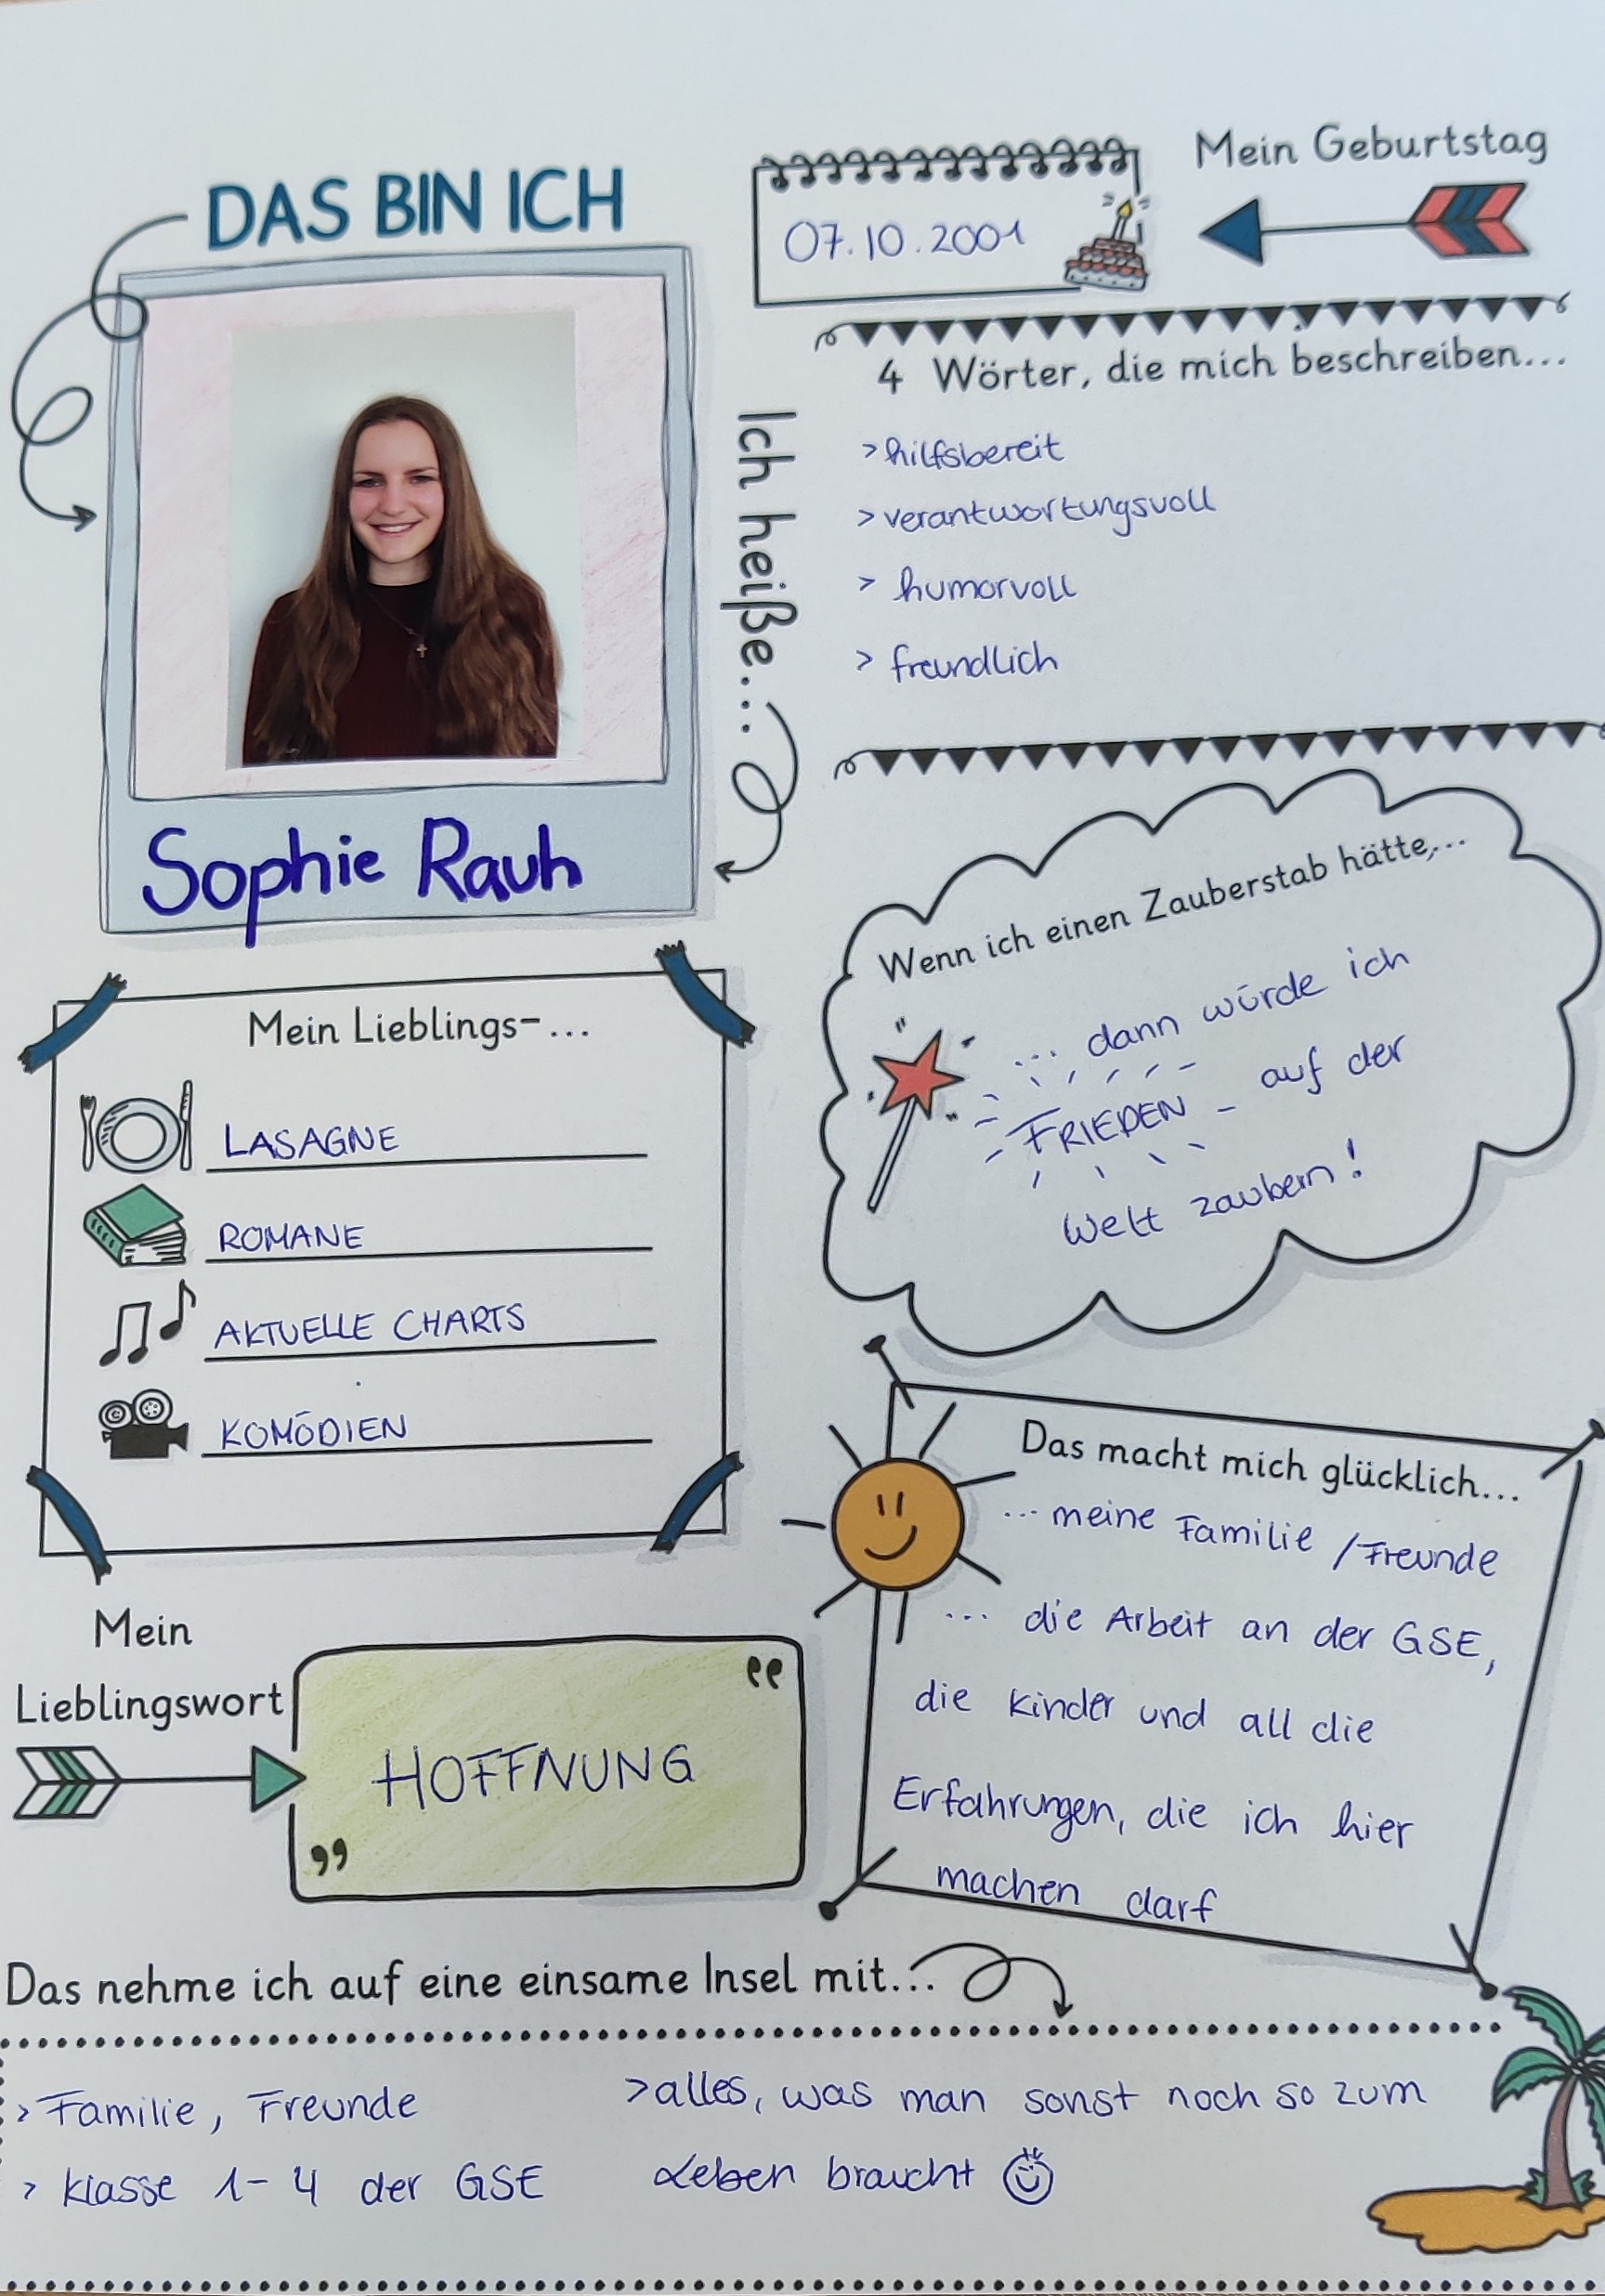 DAS BIN ICH
Ich heiße...
Sophie Rauh
Mein Geburtstag
07.10.2001
4 Wörter, die mich beschreiben...
> hilfsbereit
> verantwortungsvoll
> humorvoll
> freundlich
Wenn ich einen Zauberstab hätte,...
... dann würde ich
FRIEDEN auf der
Welt zaubern!
Mein Lieblings-...
LASAGNE
ROMANE
AKTUELLE CHARTS
KOMÖDIEN
Das macht mich glücklich...
... meine Familie / Freunde
... die Arbeit an der GSE,
die Kinder und all die
Erfahrungen, die ich hier
machen darf
Mein
Lieblingswort
HOFFNUNG
Das nehme ich auf eine einsame Insel mit...
> Familie, Freunde
> Klasse 1-4 der GSE
> alles, was man sonst noch so zum
Leben braucht